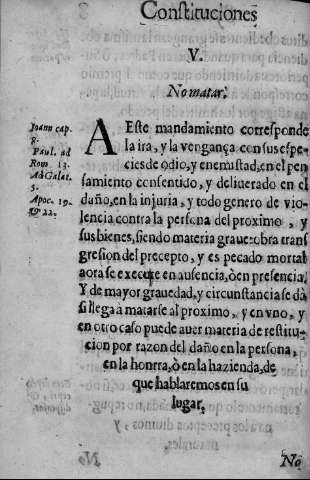 Constituciones
V.
No matar.
Ioann cap.
8.
Paul. ad
Rom 13.
Ad Galat.
5.
Apoc. 19.
& 22.
A Este mandamiento corresponde
la ira, y la vengança con sus espe-
cies de odio, y enemistad, en el pen
samiento consentido, y deliuerado en el
daño, en la injuria, y todo genero de vio-
lencia contra la persona del proximo, y
sus bienes, siendo materia graue: obra trans
gresion del precepto, y es pecado mortal
aora se execute en ausencia, ò en presencia.
Y de mayor grauedad, y circunstancia se dà
si llega a matarse al proximo, y en vno, y
en otro caso puede auer materia de restitu-
cion por razon del daño en la persona,
en la honrra, ò en la hazienda, de
que hablaremos en su
lugar.
No